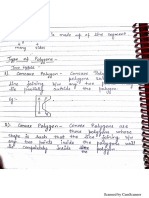 is made up of line segment
many sides
Type of Polygons -
Two types
Concave Polygon - Concave Polygon
polygons
line joining any two
lie partially outside the polygon.
eg:-
2) Convex Polygon - Convex Polygons are
those polygons where
there is such that the line joining
any two points inside the polygons will
lie completely inside the
Scanned by CamScanner